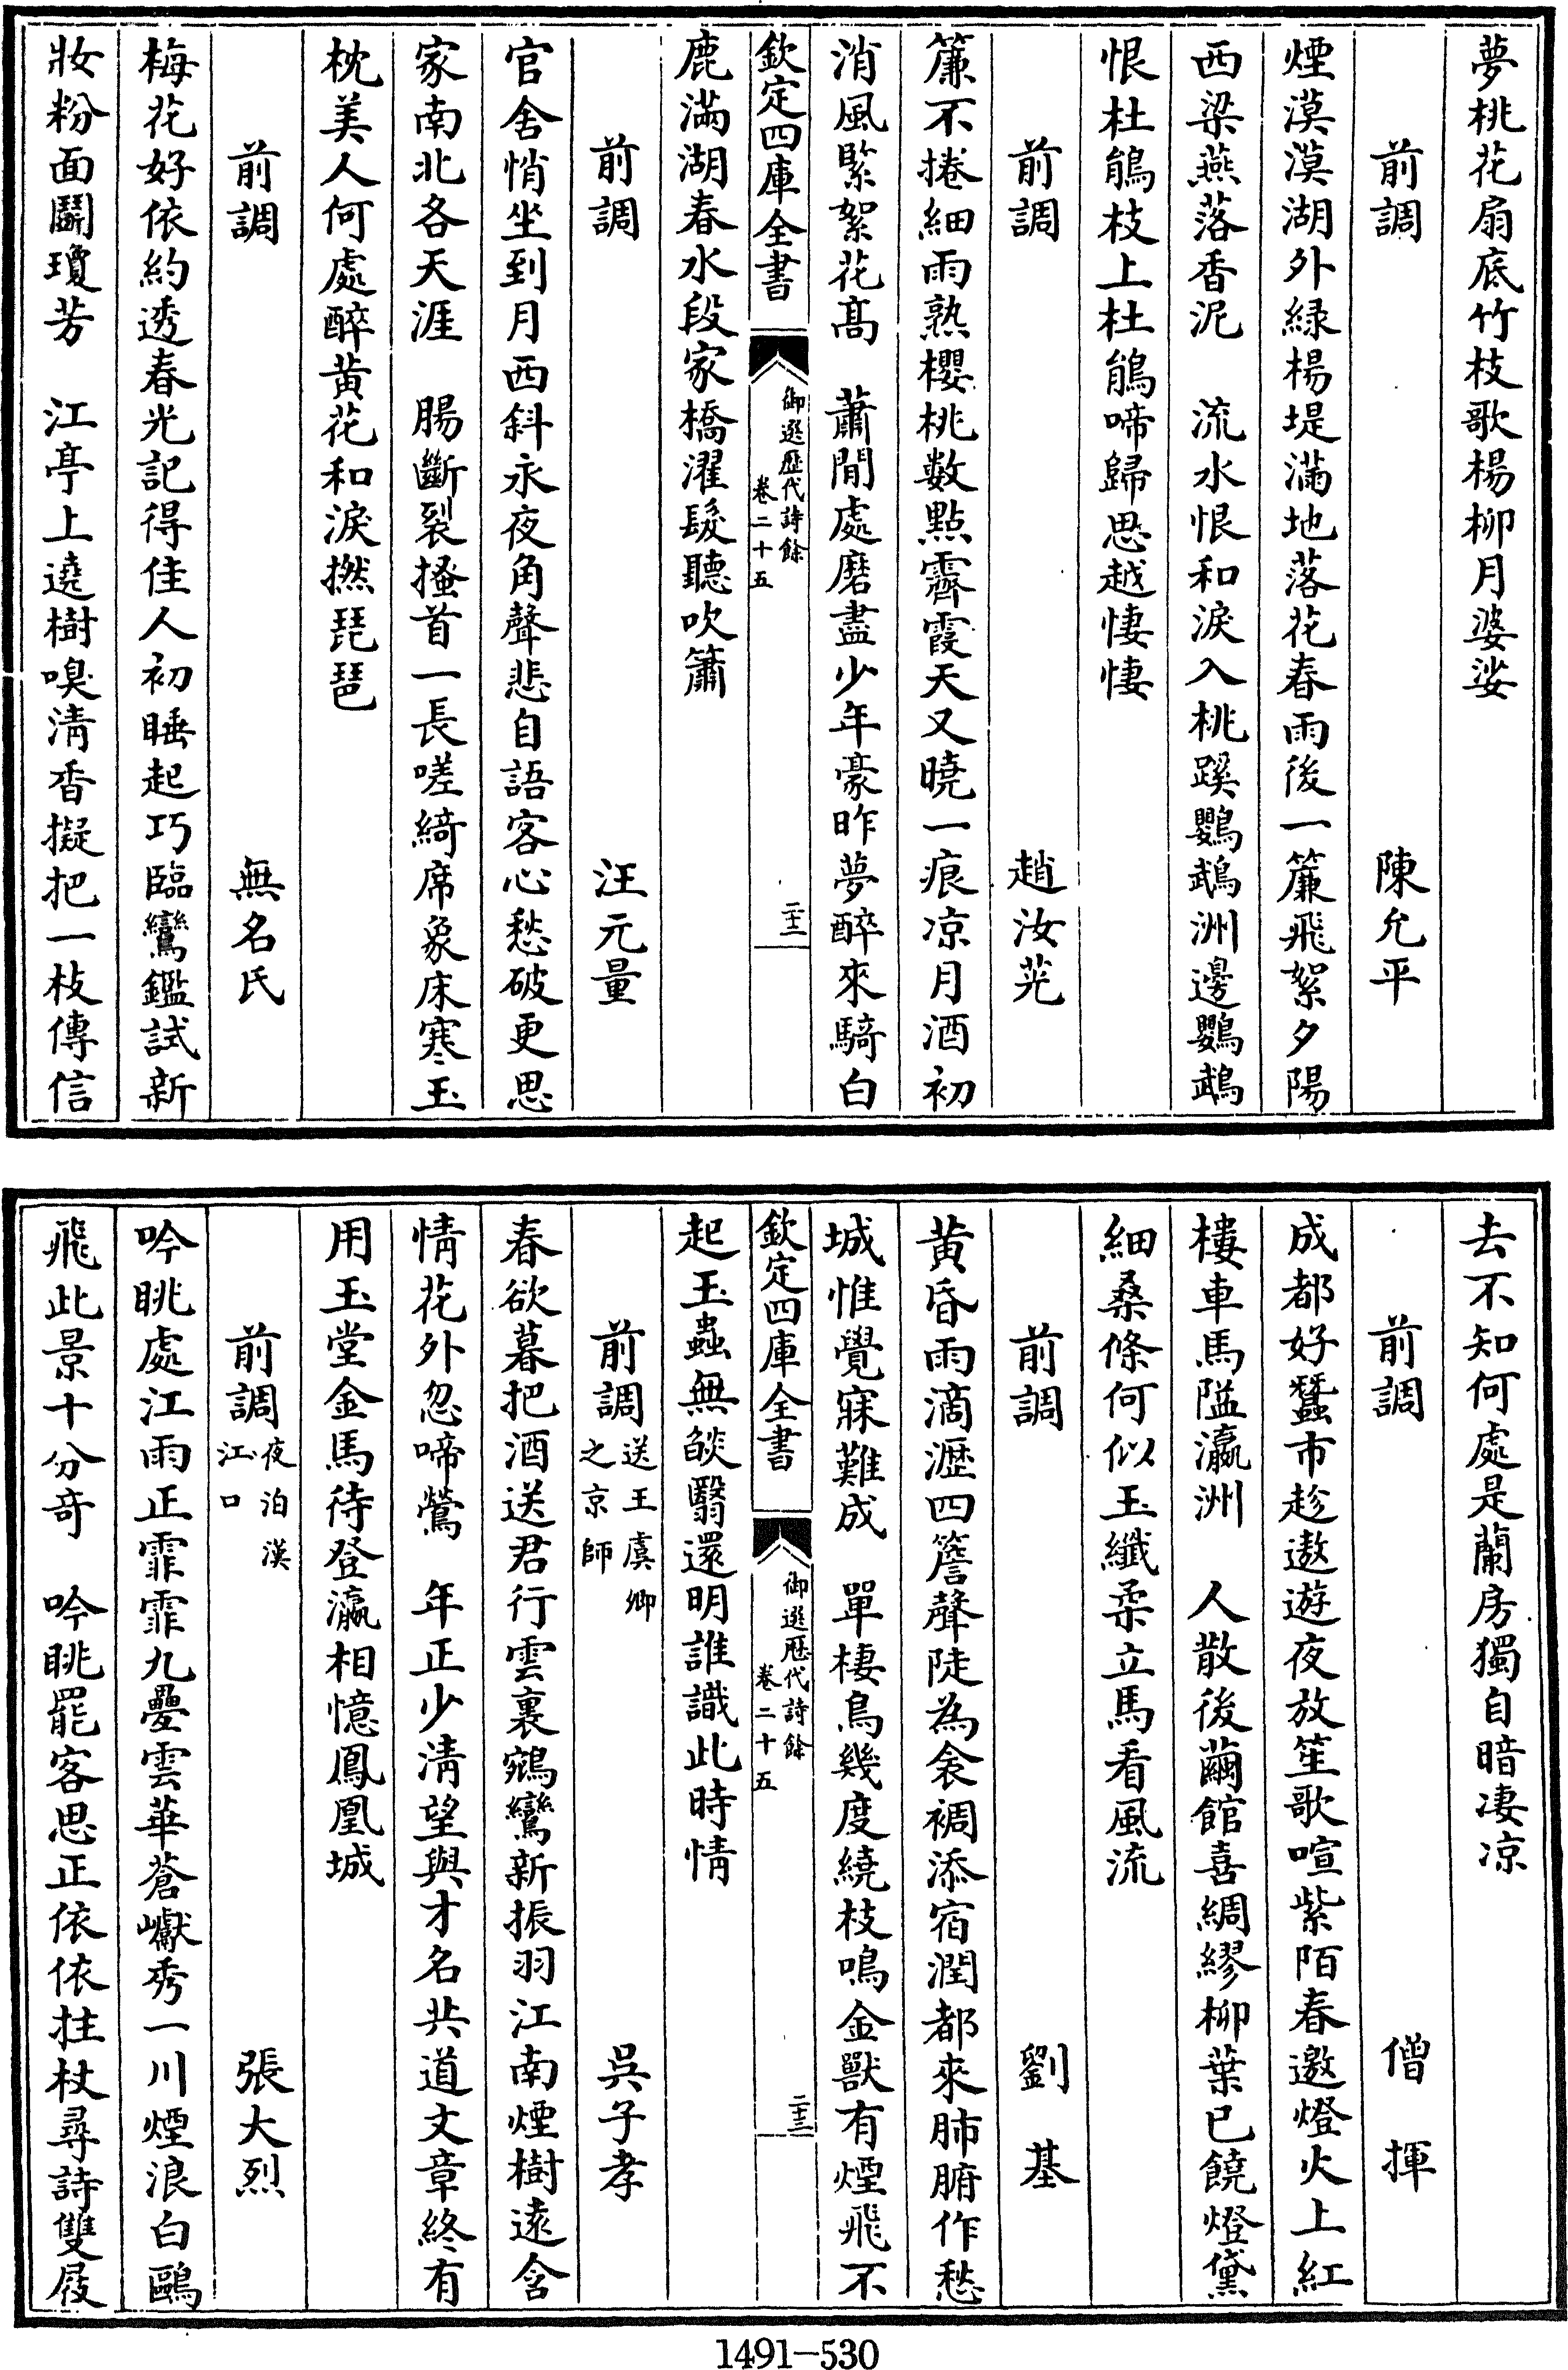 夢桃花扇底竹枝歌楊柳月婆娑
前調　陳允平
煙漠漠湖外緑楊堤滿地落花春雨後一簾飛絮夕陽
西梁燕落香泥　流水恨和淚入桃蹊鸚鵡洲邊鸚鵡
恨杜鵑枝上杜鵑啼歸思越悽悽
前調　趙汝茪
簾不捲細雨熟櫻桃数點霽霞天又曉一痕凉月酒初
消風緊絮花髙　蕭閒處磨盡少年豪昨夢醉來騎白
欽定四庫全書
御選歴代詩餘
卷二十五
二十二
鹿滿湖春水段家橋濯髮聽吹簫
前調　汪元量
官舍悄坐到月西斜永夜角聲悲自語客心愁破更思
家南北各天涯　腸斷裂搔首一長嗟綺席象床寒玉
枕美人何處醉黄花和淚撚琵琶
前調　無名氏
梅花好依約透春光記得佳人初睡起巧臨鸞鑑試新
妝粉面鬭瓊芳　江亭上遶樹嗅清香擬把一枝傳信
去不知何處是蘭房獨自暗凄凉
前調　僧揮
成都好蠶市趁遨遊夜放笙歌喧紫陌春邀燈火上紅
樓車馬隘瀛洲　人散後繭館喜綢繆柳葉已饒燈黛
細桑條何似玉纖柔立馬看風流
前調　劉基
黄昏雨滴瀝四簷聲陡為衾裯添宿潤都來肺腑作愁
城惟覺寐難成　單棲鳥幾度繞枝鳴金獸有煙飛不
欽定四庫全書
御選歴代詩餘
卷二十五
二十三
起玉蟲無燄翳還明誰識此時情
前調送王虞卿之京師　吳子孝
春欲暮把酒送君行雲裏鵷鸞新振羽江南煙樹遠含
情花外忽啼鶯　年正少清望與才名共道文章終有
用玉堂金馬待登瀛相憶鳳凰城
前調夜泊漢江口　張大烈
吟眺處江雨正霏霏九疊雲華蒼巘秀一川煙浪白鷗
飛此景十分竒　吟眺罷客思正依依拄杖尋詩雙屐
1491—530